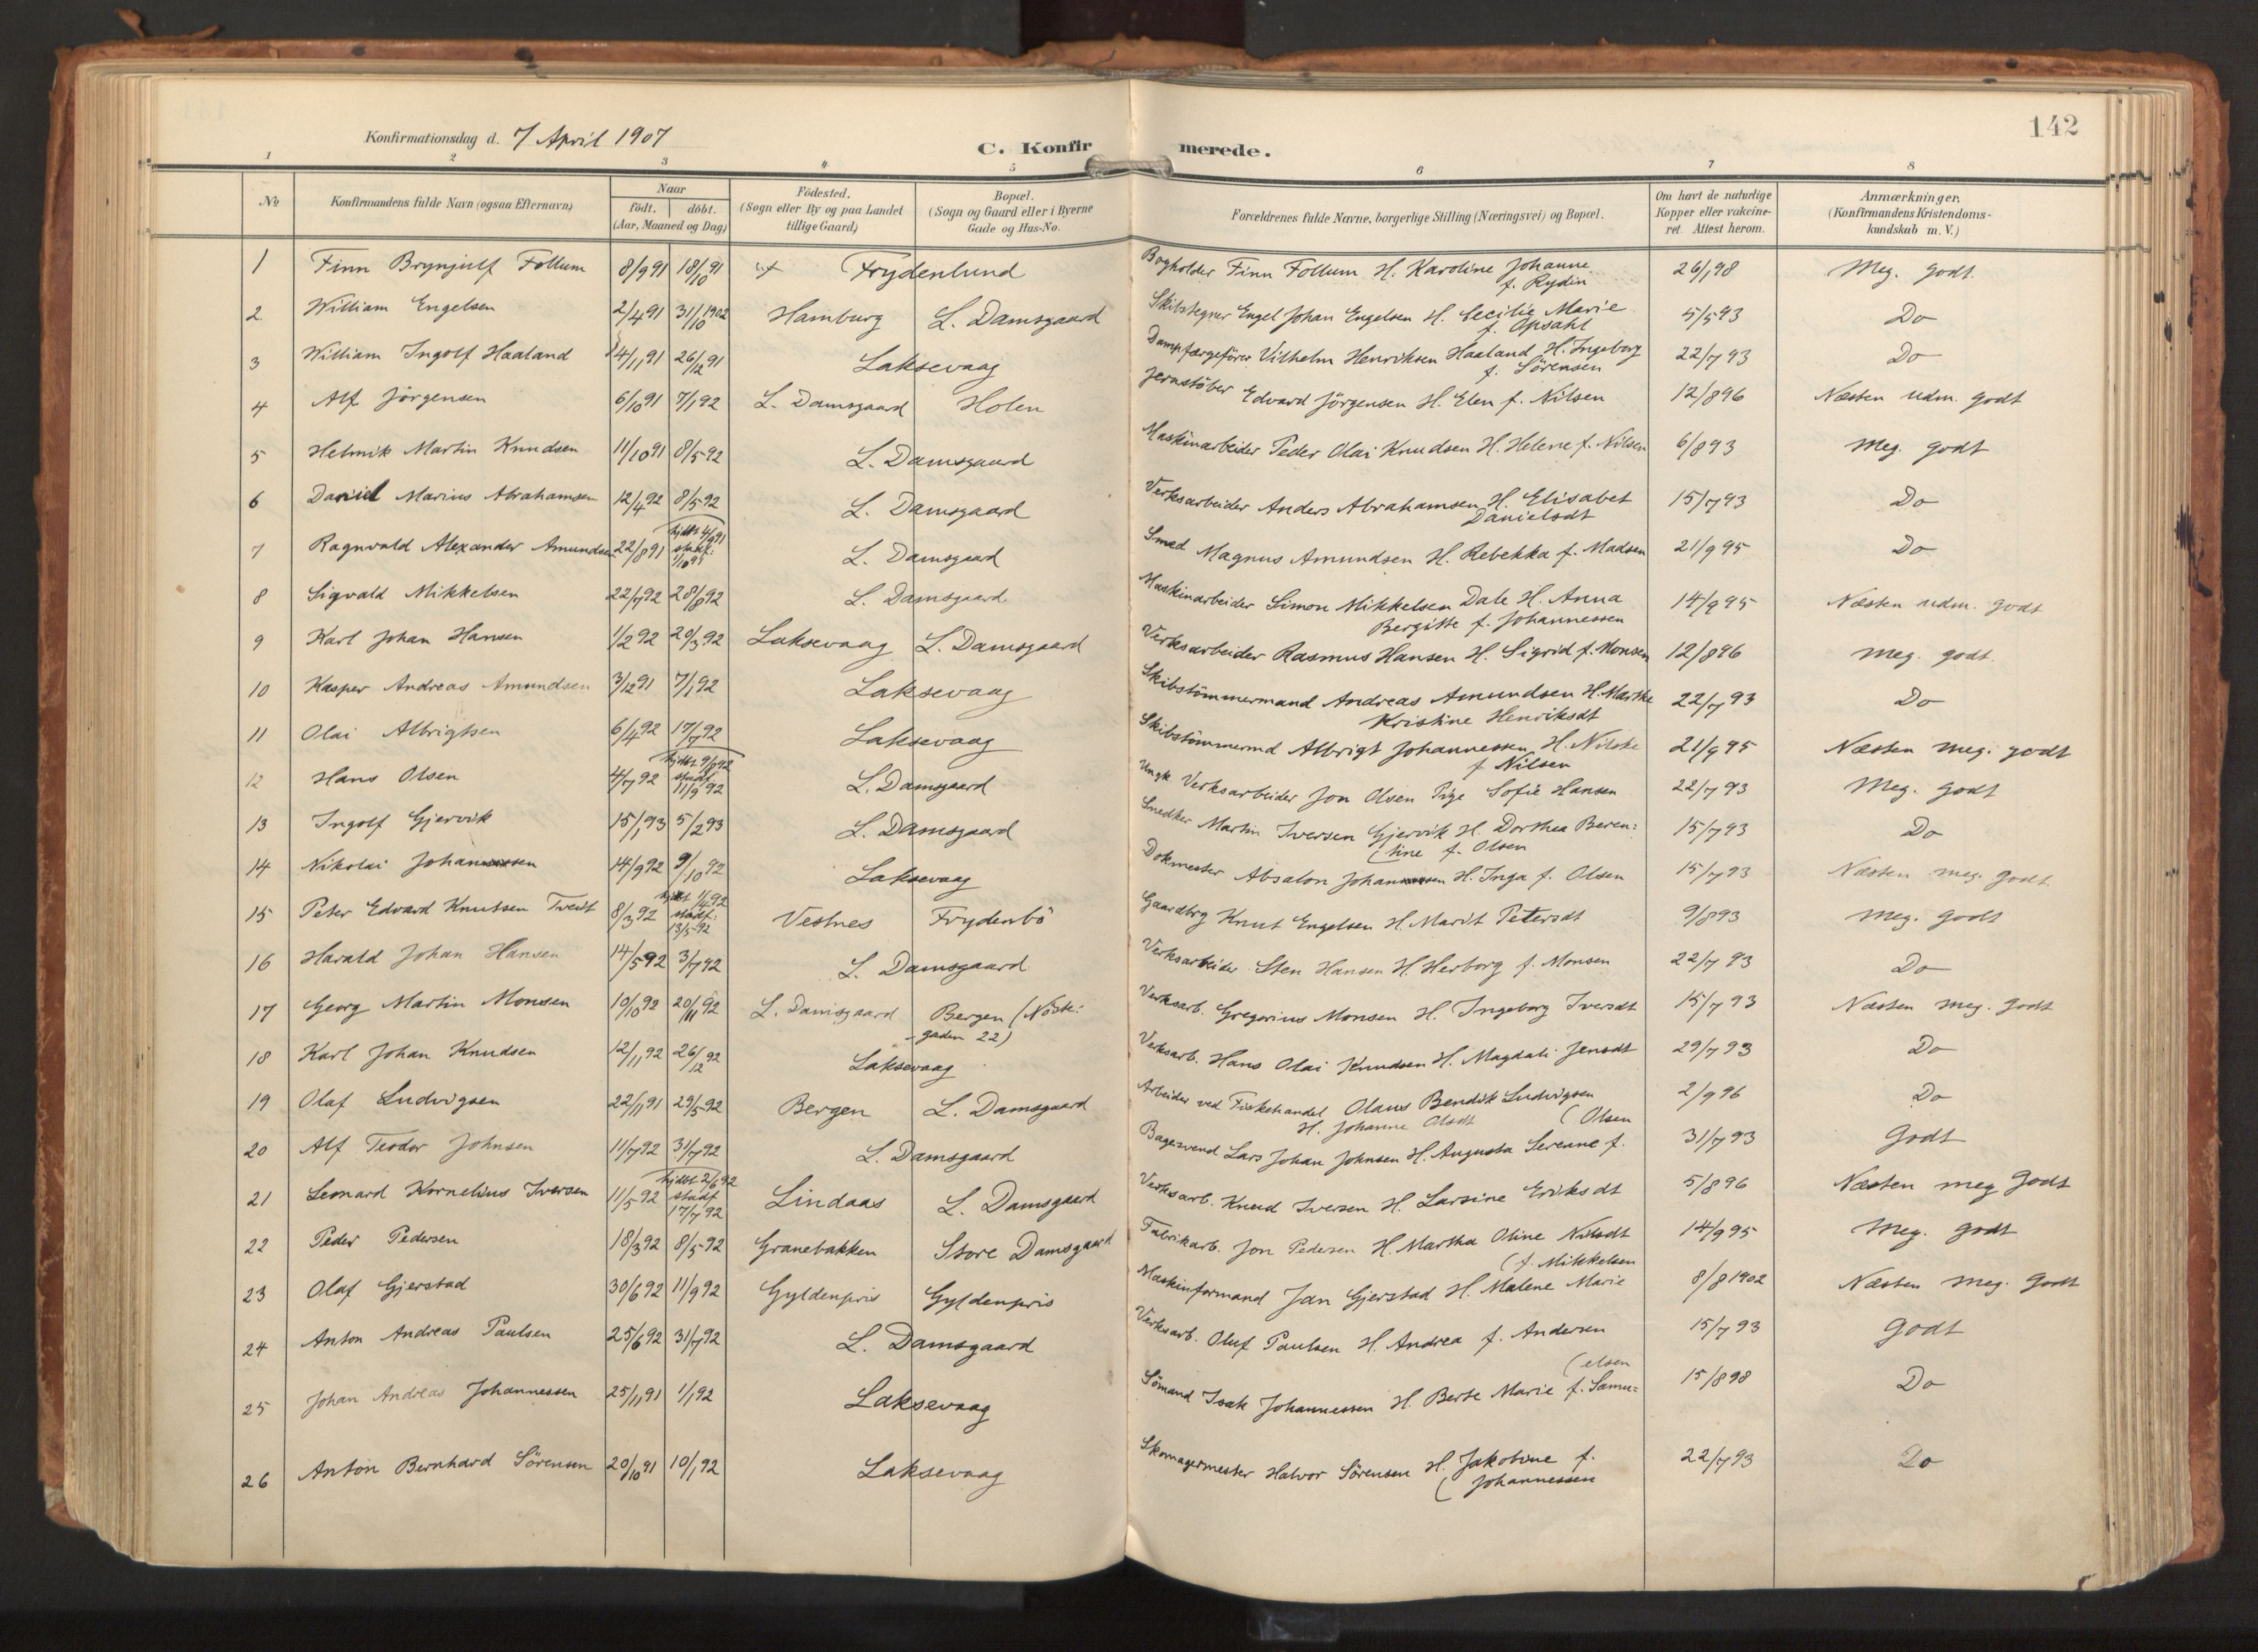 142
Konfirmationsdag d. 7 April 1907
C. Konfirmerede.
1 2 3 4 5 6 7 8
No
Konfirmandens fulde Navn (ogsaa Efternavn)
Naar
födt. döbt.
(Aar, Maaned og Dag)
Födested.
(Sogn eller By og paa Landet
tillige Gaard)
Bopæl.
(Sogn og Gaard eller i Byerne
Gade og Hus-No.
Forældrenes fulde Navne, borgerlige Stilling (Næringsvei) og Bopæl.
Om havt de naturlige
Kopper eller vakcine-
ret. Attest herom.
Anmærkninger.
(Konfirmandens Kristendoms-
kundskab m. V.)
1 Finn Brynjulf Follum 8/9 91 18/10 91 Frydenlund Bogholder Finn Follum H. Karoline Johanne 26/1 98 Meg. godt.
f. Rydin
2. William Engelsen 2/4 91 31/10 1902 Hamburg L. Damsgaard Skibstegner Engel Johan Engelsen H. Cecilie Marie 5/5 93 Do
f. Opsahl
3 William Ingolf Haaland 24/11 91 26/12 91 Laksevaag Dampfærgefører Vilhelm Henriksen Haaland H. Ingeborg 22/7 93 Do
f. Sörensen
4 Alf Jörgensen 6/10 91 7/1 92 L. Damsgaard Holen Jernstöber Edvard Jörgensen H. Elen f. Nilsen 12/8 96 Næsten udm. godt
5 Helmik Martin Knudsen 11/10 91 8/5 92 L. Damsgaard Maskinarbeider Peder Olai Knudsen H. Helene f. Nilsen 6/8 93 Meg. godt
6 Daniel Marius Abrahamsen 12/4 92 8/5 92 L. Damsgaard Verksarbeider Anders Abrahamsen H. Elisabet 15/7 93 Do
Danielsdt
7 Ragnvald Alexander Amundsen 22/8 91 hjdbt 4/9 91 stadf: L. Damsgaard Smed Magnus Amundsen H. Rebekka f. Madsen 21/9 95 Do
8 Sigvald Mikkelsen 22/7 92 28/8 92 L. Damsgaard Maskinarbeider Simon Mikkelsen Dale H. Anna 14/9 95 Næsten udm. godt
Bergitte f. Johannessen
9 Karl Johan Hansen 1/2 92 20/3 92 Laksevaag L. Damsgaard Verksarbeider Rasmus Hansen H. Sigrid f. Monsen 12/8 96 Meg. godt.
10 Kasper Andreas Amundsen 3/12 91 7/1 92 Laksevaag Skibstömmermand Andreas Amundsen H. Marthe 22/7 93 Do
Kristine Henriksdt
11 Olai Albrigtsen 6/4 92 17/7 92 Laksevaag Skibstömmermd Albrigt Johannessen H. Nilske 21/9 95 Næsten meg. godt
f Nilsen
12 Hans Olsen 4/7 92 hjdbt 9/7 92 stadf 11/9 92 L. Damsgaard Ungk. Verksarbeider Jon Olsen Pige Sofie Hansen 22/7 93 Meg. godt
13 Ingolf Gjervik 15/1 93 5/2 93 L. Damsgaard Snedker Martin Iversen Gjervik H. Dorthea Beren= 15/7 93 Do
(tine f. Olsen
14 Nikolai Johansen 14/9 92 9/10 92 Laksevaag Dokmester Absalon Johansen H. Inga f. Olsen 15/7 93 Næsten meg. godt.
15 Peter Edvard Knutsen Tveit 8/3 92 hjdbt 1/4 92 stadf: 13/5-92 Vestnes Frydenbö Gaardbrg Knut Engelsen H. Marit Petersdt 9/8 93 Meg. godt
16 Harald Johan Hansen 14/5 92 3/7 92 L. Damsgaard Verksarbeider Sten Hansen H. Herborg f. Monsen 22/7 93 Do
17 Georg Martin Monsen 10/10 92 20/11 92 L. Damsgaard Bergen (Nöste: Verksarb. Gregorius Monsen H. Ingeborg Iversdt 15/7 93 Næsten meg. godt
- gaden 22)
18 Karl Johan Knudsen 12/11 92 26/12 92 Laksevaag Verksarb. Hans Olai Knudsen H. Magdali Jensdt 29/7 93 Do
19 Olaf Ludvigsen 22/11 91 29/5 92 Bergen L. Damsgaard Arbeider ved Fiskehandel Olaus Bendik Ludvigsen 2/9 96 Do
H. Johanne Olsdt
20 Alf Teodor Johnsen 11/7 92 31/7 92 L. Damsgaard Bagersvend Lars Johan Johnsen H. Augusta Sereane f. (Olsen 31/7 93 Godt
21 Leonard Kornelius Iversen 11/5 92 hjdbt 2/6 92 stadf 17/7 92 Lindaas L. Damsgaard Verksarb. Knud Iversen H. Larsine Eriksdt 5/8 96 Næsten meg Godt
22 Peder Pedersen 18/3 92 8/5 92 Granebakken Store Damsgaard Fabrikarb. Jon Pedersen H. Martha Oline Nilsdt 14/9 95 Meg. godt
23 Olaf Gjerstad 30/6 92 11/9 92 Gyldenpris Gyldenpris Maskinformand Jan Gjerstad H. Malene Marie (f. Mikkelsen 8/8 1902 Næsten meg. godt
24 Anton Andreas Paulsen 25/6 92 31/7 92 L. Damsgaard Verksarb. Oluf Paulsen H. Andrea f. Andersen 15/7 93 Godt
25 Johan Andreas Johannessen 25/11 91 1/1 92 Laksevaag Sömand Isak Johannessen H. Berte Marie f. Samu= (elsen 15/8 98 Do
26 Anton Bernhard Sörensen 20/10 91 10/1 92 Laksevaag Skomagermester Halvor Sörensen H. Jakobine f. 22/7 93 Do
(Johannessen